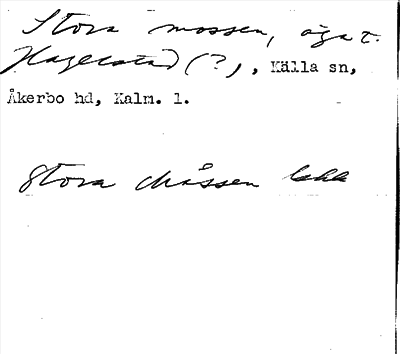 Stora mossen, äga t.
Hagelstad (?), Källa sn,
Åkerbo hd, Kalm. l.
Stora Måssen